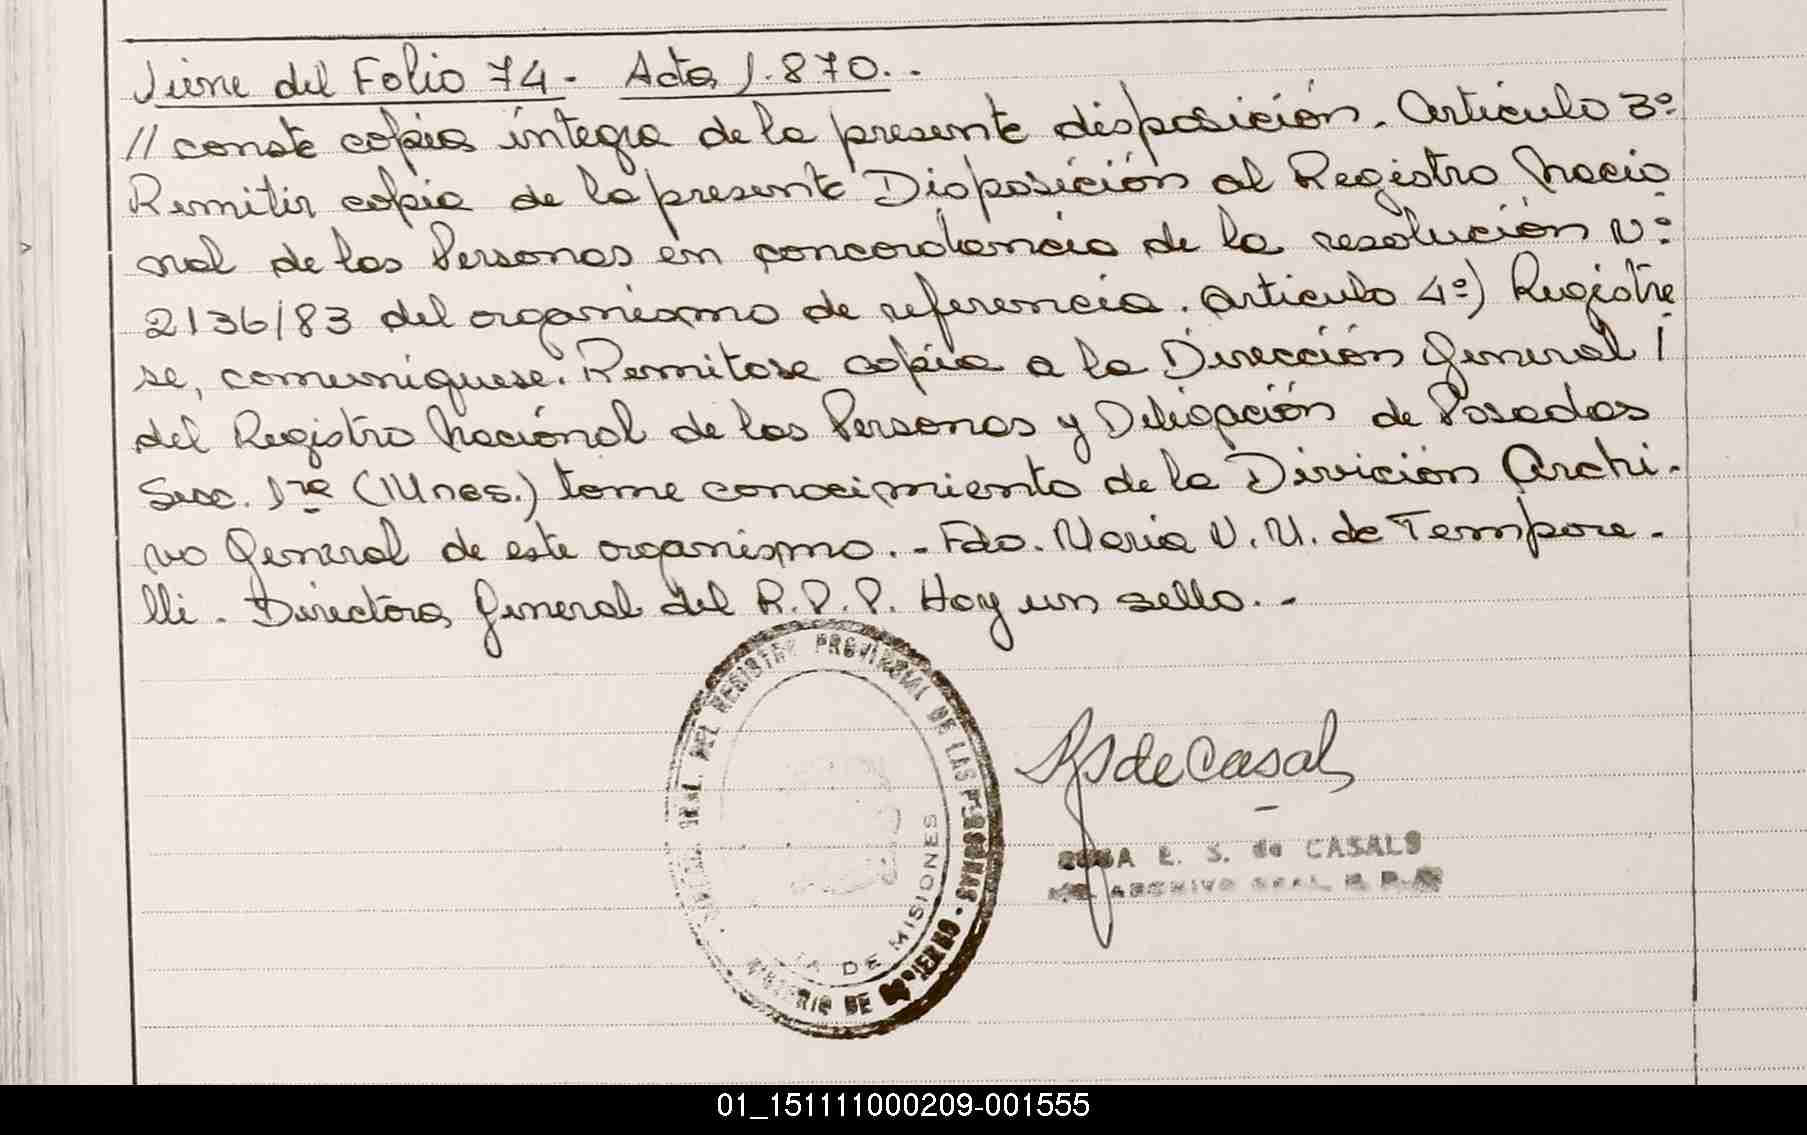 Viene del Folio 74 - Acta 1.870. -
// conste copia íntegra de la presente disposición. Artículo 3º
Remitir copia de la presente Disposición al Registro Nacio
nal de las Personas en concordancia de la resolución Nº
2136/83 del organismo de referencia. Artículo 4º) Registre
se, comuníquese. Remitase copia a la Dirección General /
del Registro Nacional de las Personas y Delegación de Posadas
Secc. 1ra (Mnes.) tome conocimiento de la División Archi-
vo General de este organismo. - Fdo. Maria N. M. de Tempore-
lli. Directora General del R.P.P. Hay un sello. -
GRAL. DEL REGISTRO PROVINCIAL DE LAS PERSONAS - MINISTERIO DE GOBIERNO
DE MISIONES
de Casals
ROSA E. S. de CASALS
ARCHIVO GRAL. R. P.
01_151111000209-001555